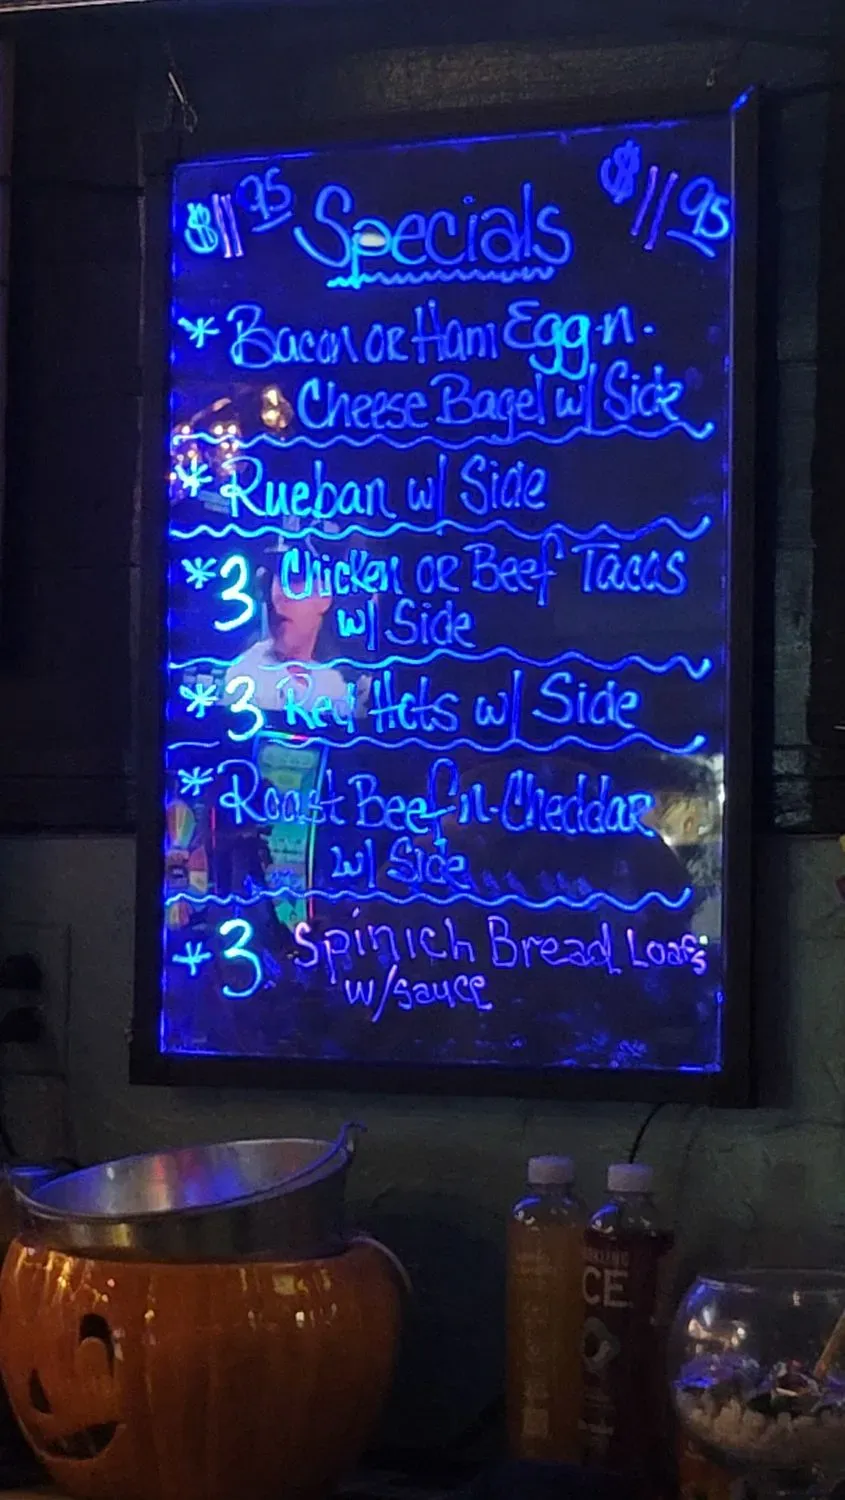 $11.75 Specials $11.95
* Bacon or Ham Egg-n-
Cheese Bagel w/ Side
* Rueban w/ Side
* 3 Chicken or Beef Tacos
w/ Side
* 3 Red Hots w/ Side
* Roast Beef n-Cheddar
w/ Side
* 3 Spinich Bread Loafs
w/sauce
CE